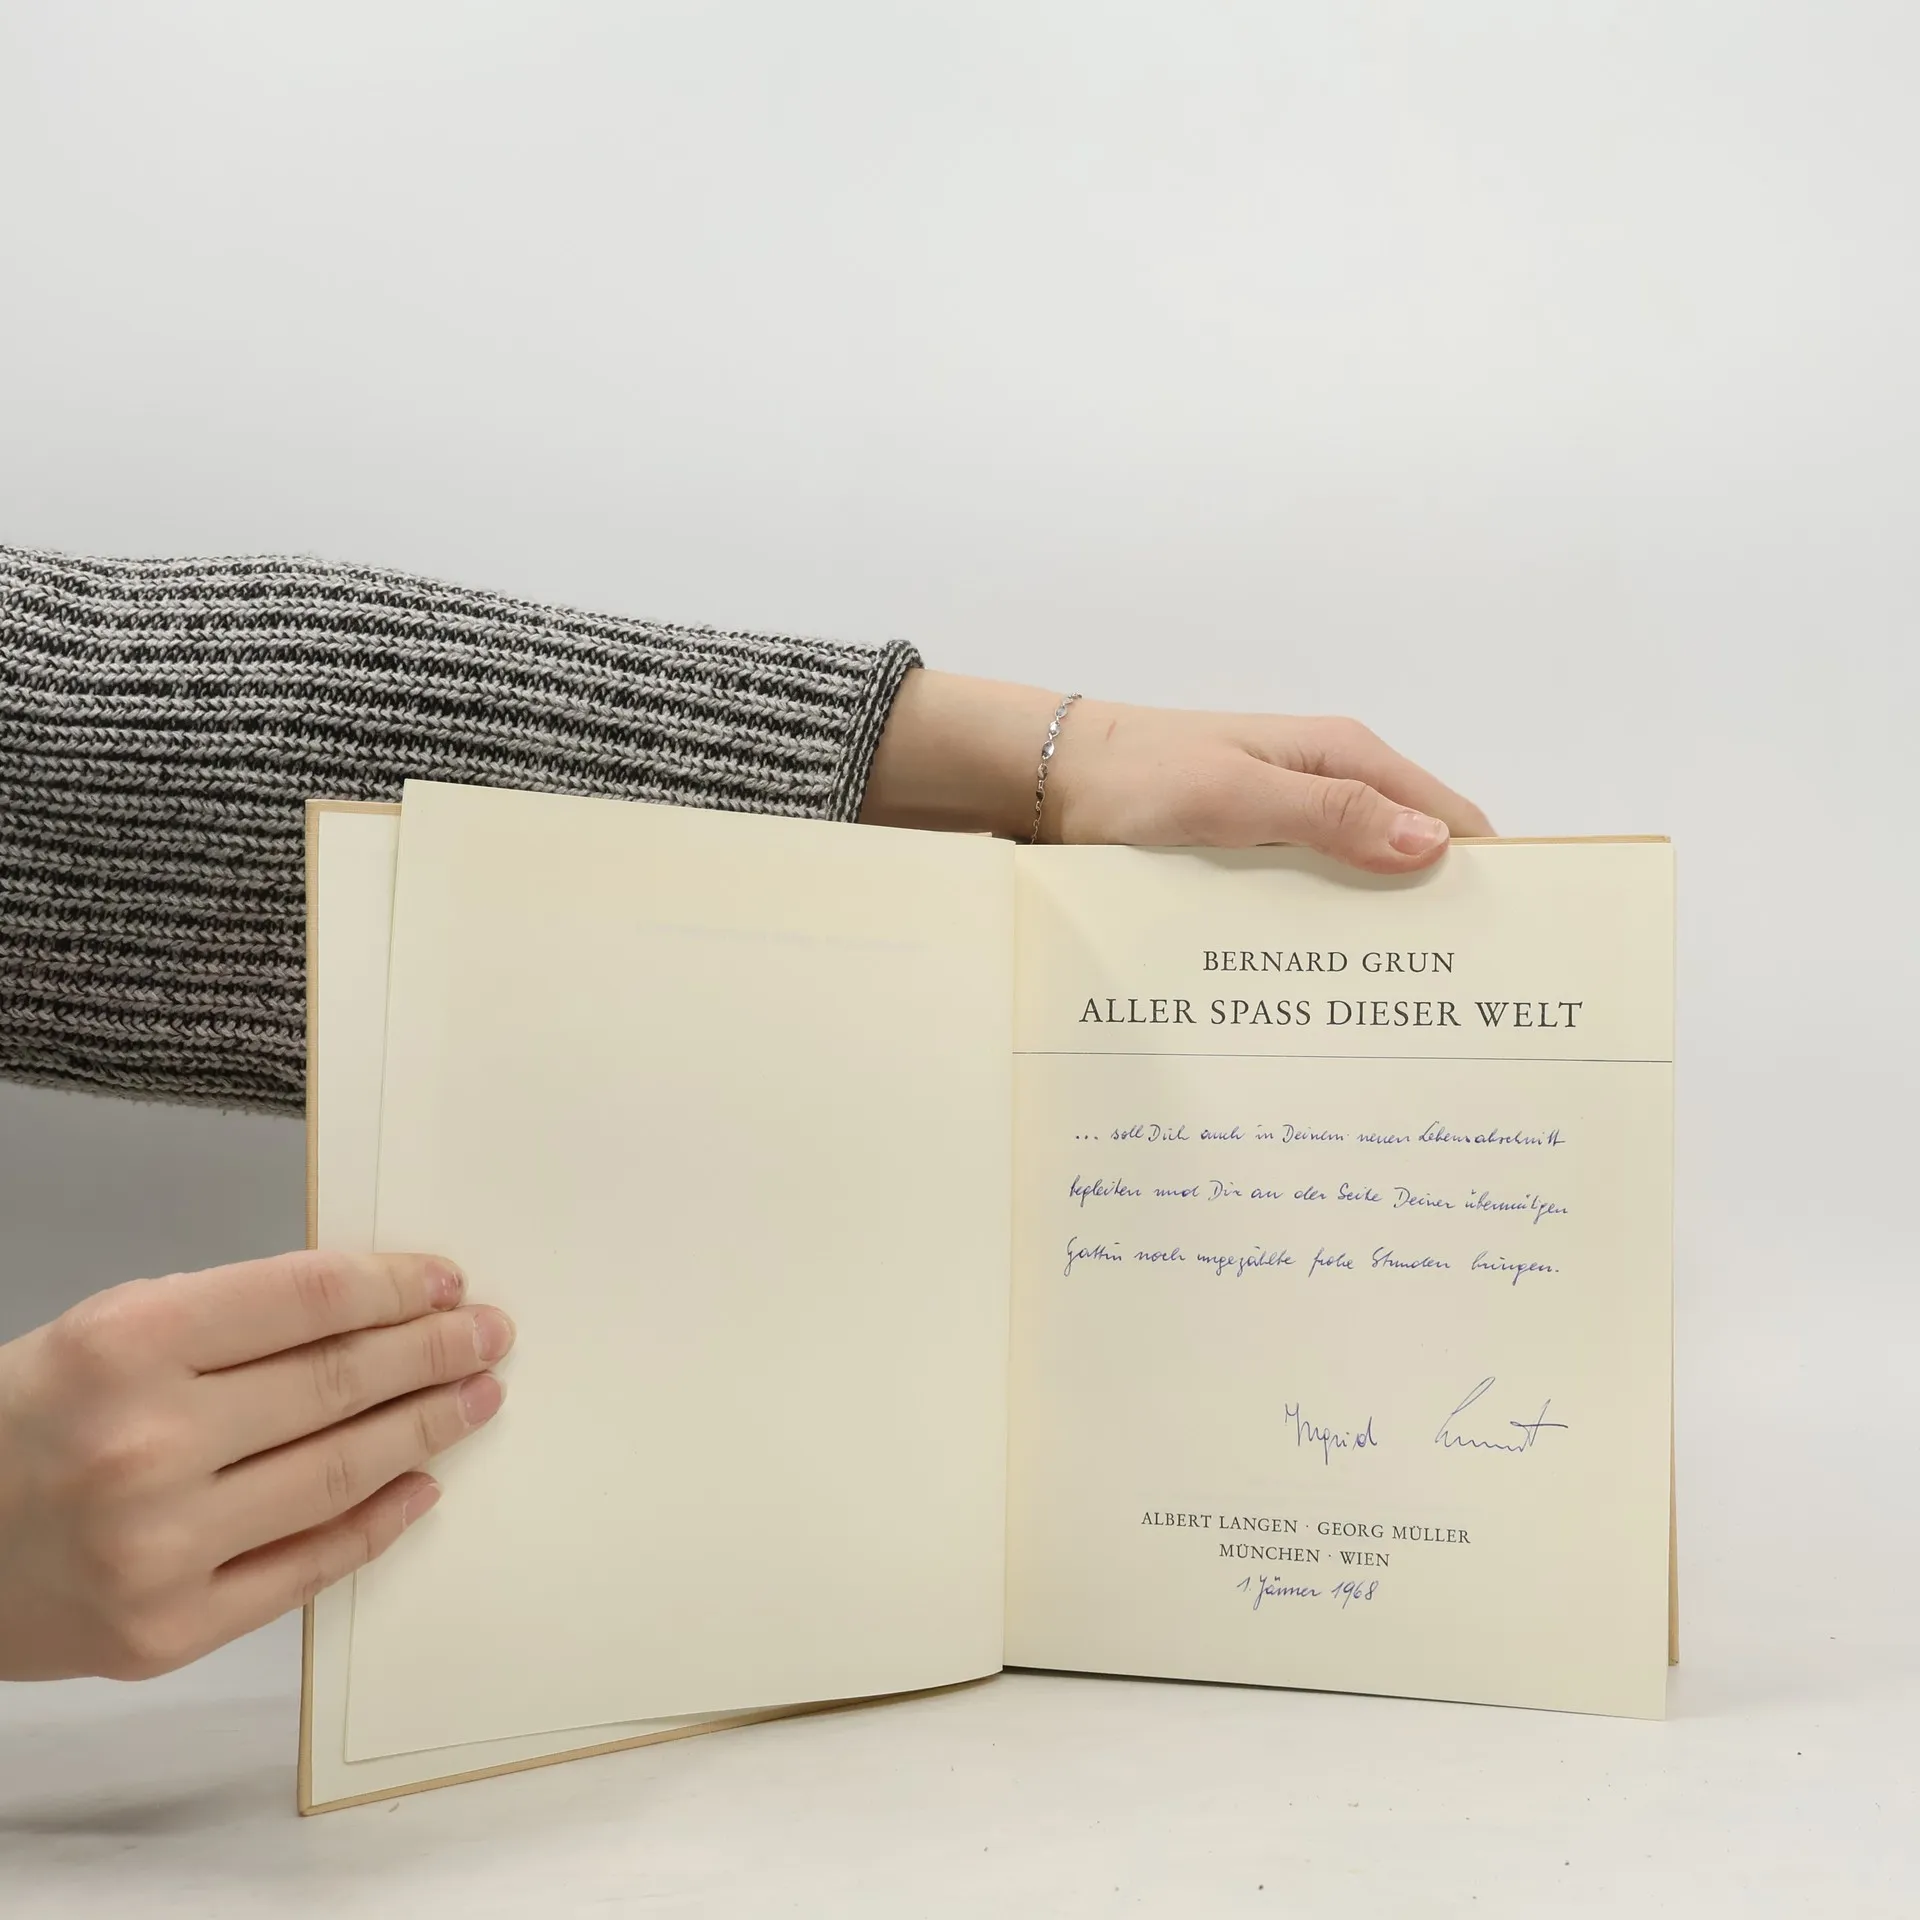 BERNARD GRUN
ALLER SPASS DIESER WELT
... soll Dich auch in Deinem neuen Lebensabschnitt
begleiten und Dir an der Seite Deiner übermütigen
Gattin noch ungezählte frohe Stunden bringen.
Ingrid
ALBERT LANGEN · GEORG MÜLLER
MÜNCHEN · WIEN
1. Jänner 1968